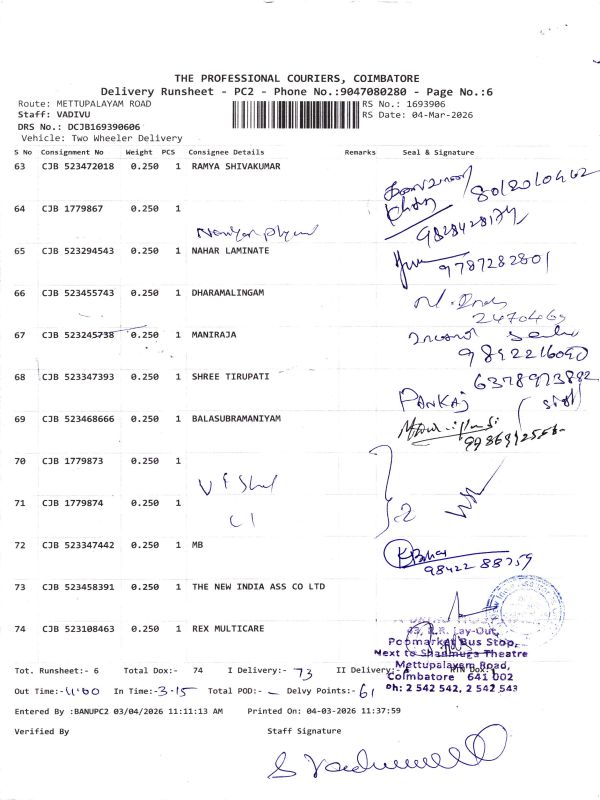 THE PROFESSIONAL COURIERS, COIMBATORE
Delivery Runsheet - PC2 - Phone No.:9047080280 - Page No.:6
Route: METTUPALAYAM ROAD
RS No.: 1693906
Staff: VADIVU
RS Date: 04-Mar-2026
DRS No.: DCJB169390606
Vehicle: Two Wheeler Delivery
S No Consignment No Weight PCS Consignee Details Remarks Seal & Signature
63 CJB 523472018 0.250 1 RAMYA SHIVAKUMAR
64 CJB 1779867 0.250 1
9828428174
65 CJB 523294543 0.250 1 NAHAR LAMINATE
9787282801
66 CJB 523455743 0.250 1 DHARAMALINGAM
2470469
67 CJB 523245738 0.250 1 MANIRAJA
9892216090
68 CJB 523347393 0.250 1 SHREE TIRUPATI
6378973882
PANKAJ
69 CJB 523468666 0.250 1 BALASUBRAMANIYAM
70 CJB 1779873 0.250 1
71 CJB 1779874 0.250 1
72 CJB 523347442 0.250 1 MB
98422 88759
73 CJB 523458391 0.250 1 THE NEW INDIA ASS CO LTD
74 CJB 523108463 0.250 1 REX MULTICARE
Lay-Out,
Poomarket Bus Stop,
Next to Shanmuga Theatre
Mettupalayam Road,
Coimbatore 641 002
Ph: 2 542 542, 2 542 543
Tot. Runsheet:- 6 Total Dox:- 74 I Delivery:- 73 II Delivery:- RTN Dox:-
Out Time:- 11.00 In Time:- 3.15 Total POD:- - Delvy Points:- 61
Entered By :BANUPC2 03/04/2026 11:11:13 AM Printed On: 04-03-2026 11:37:59
Verified By Staff Signature